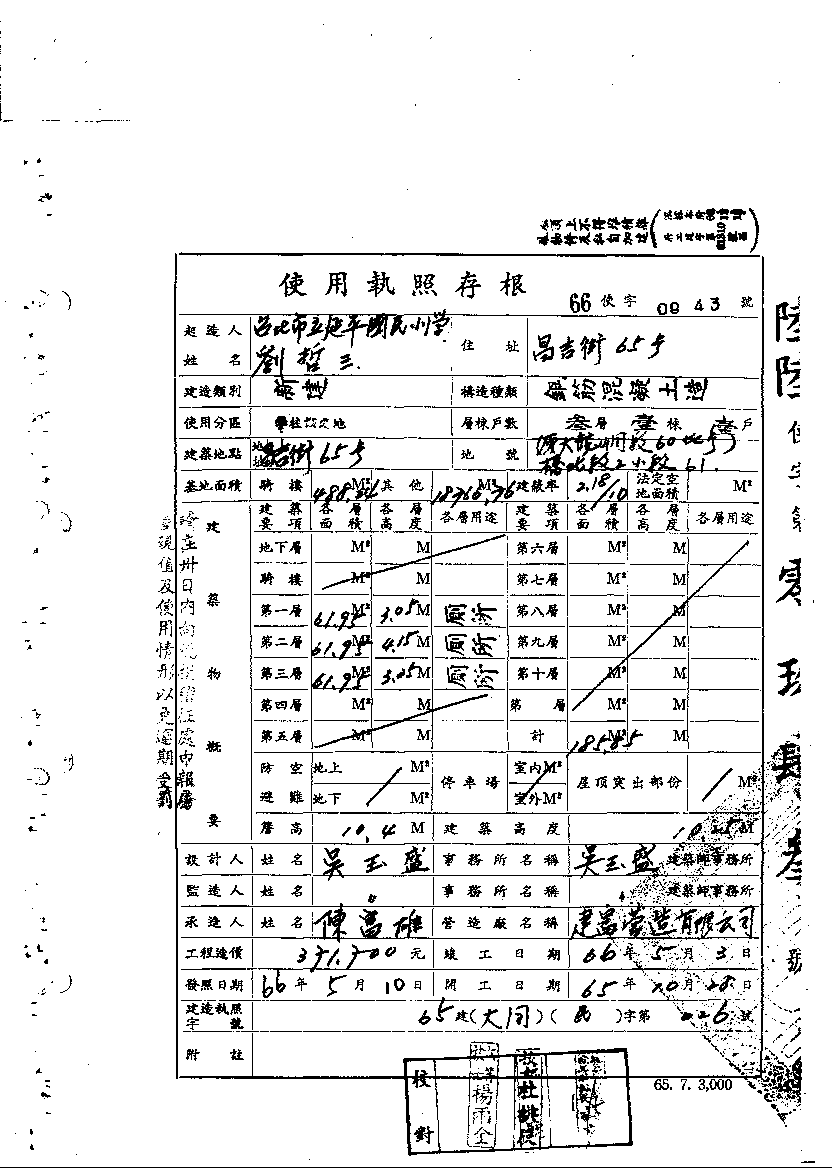 使用執照存根
66 使字 0943 號
起造人姓名 台北市立延平國民小学 劉哲三 住址 昌吉街65号
建造類別 新建 構造種類 鋼筋混凝土造
使用分區 層棟戶數 叁層 壹棟 壹戶
建築地點 昌吉街65号 地號 橋北段2小段61
基地面積 騎樓 M² 其他 M² 建蔽率 法定空地面積 M²
建築物概要
建築要項 各層面積 各層高度 各層用途 建築要項 各層面積 各層高度 各層用途
地下層 M² M 第六層 M² M
騎樓 M² M 第七層 M² M
第一層 61.95 M² 3.05 M 廁所 第八層 M² M
第二層 61.95 M² 4.15 M 廁所 第九層 M² M
第三層 61.95 M² 3.25 M 廁所 第十層 M² M
第四層 M² M 第 層 M² M
第五層 M² M 計 185.85 M² M
防空避難 地上 M² 停車場 室內 M² 屋頂突出部份 M²
地下 M² 室外 M²
簷高 10.4 M 建築高度 10.25 M
設計人 姓名 吳玉盛 事務所名稱 吳玉盛 建築師事務所
監造人 姓名 〃 事務所名稱 〃 建築師事務所
承造人 姓名 陳富雄 營造廠名稱 建富營造有限公司
工程造價 371,700 元 竣工日期 66年5月3日
發照日期 66年5月10日 開工日期 65年10月28日
建造執照字號 65建(大同)(民)字第026號
附註
65. 7. 3,000
校對
楊雨全
陸陸使字第零玖肆叁號